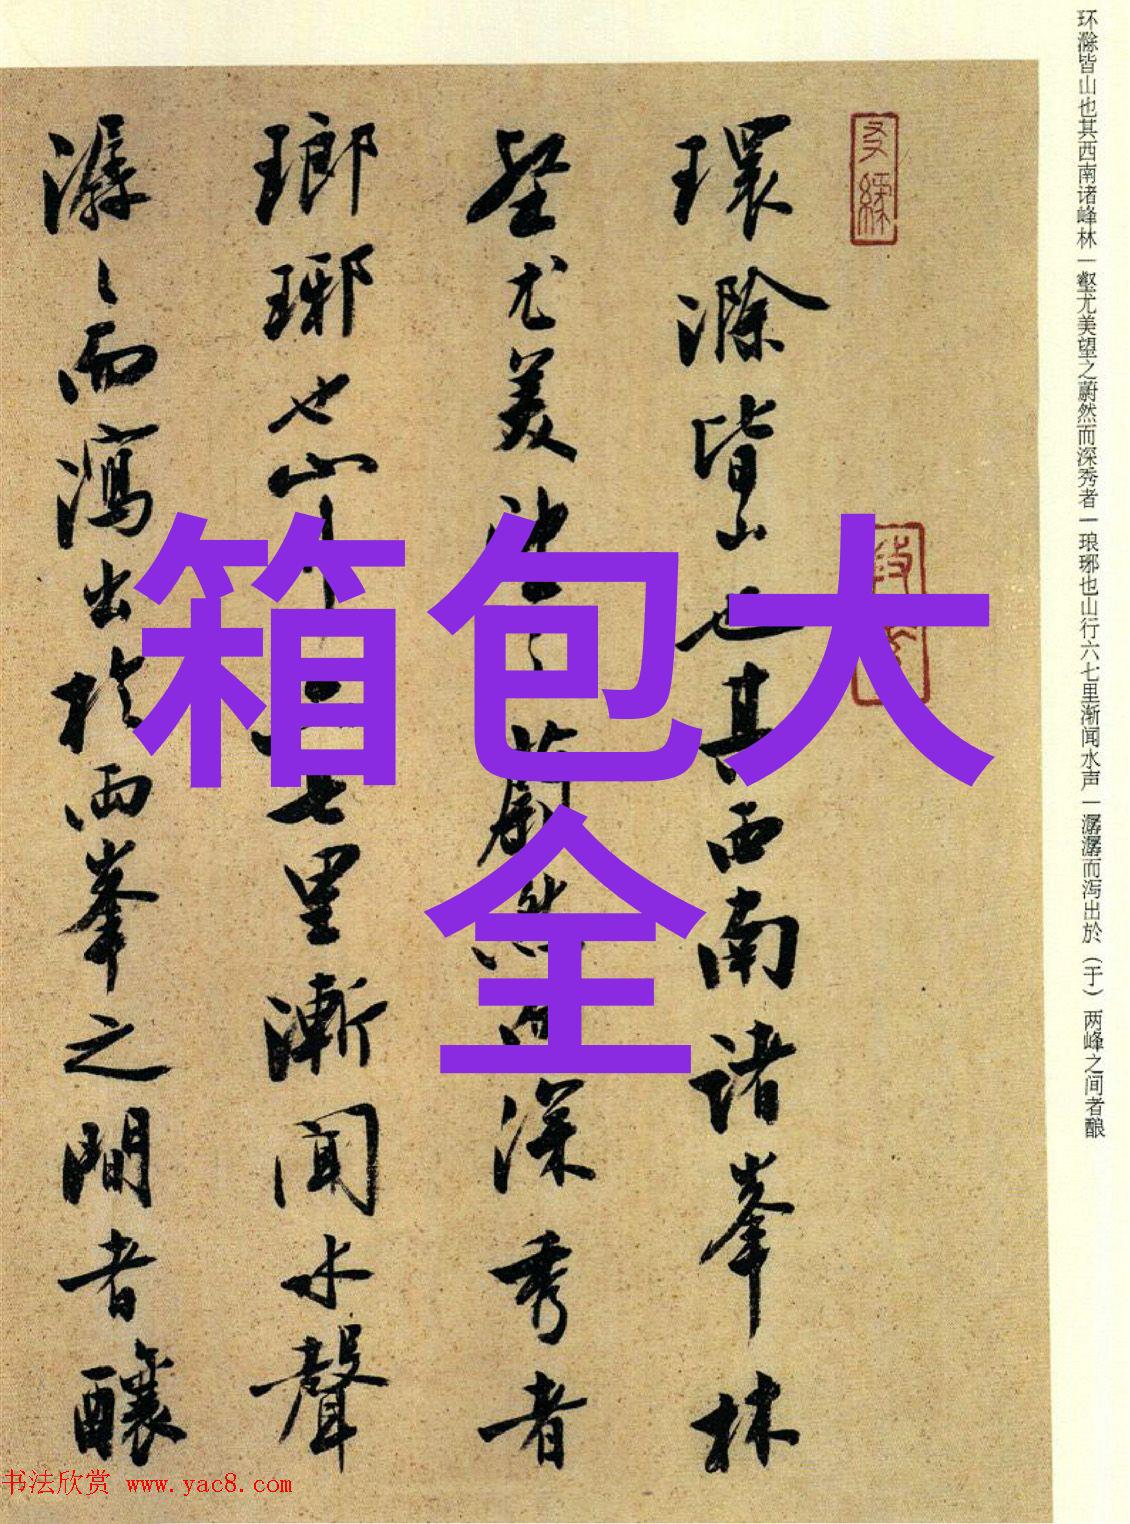 环滁皆山也其西南诸峰林一壑尤美望之蔚然而深秀者一琅琊也山行六七里渐闻水声一潺潺而泻出於（于）两峰之间者酿
環滁皆山也其西南諸峯林
壑尤美望之蔚然而深秀者
瑯琊也山行七里漸聞水聲
潺〻而瀉出於兩峯之間者釀
箱包大
全
书法欣赏 www.yac8.com